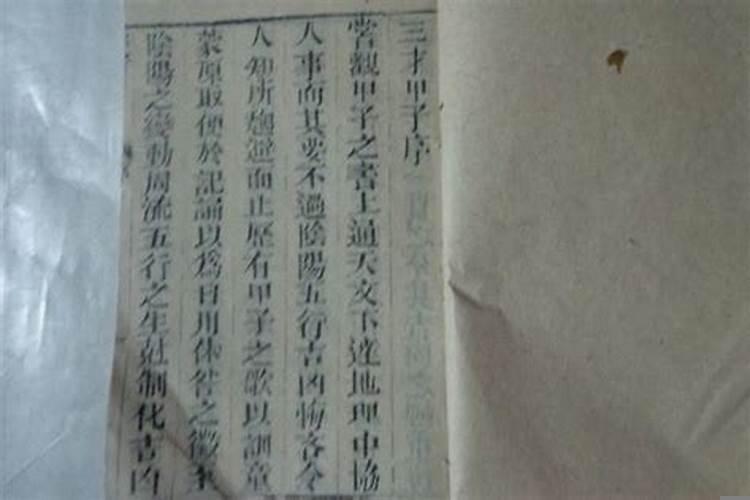 三才甲子序
嘗觀甲子之書上通天文下達地理中協
人事而其要不過陰陽五行吉凶悔吝令
人知所趨避而止歷有甲子之歌以訓童
蒙原取便於記誦以為日用休咎之徵至
陰陽之變動周流五行之生尅制化吉凶